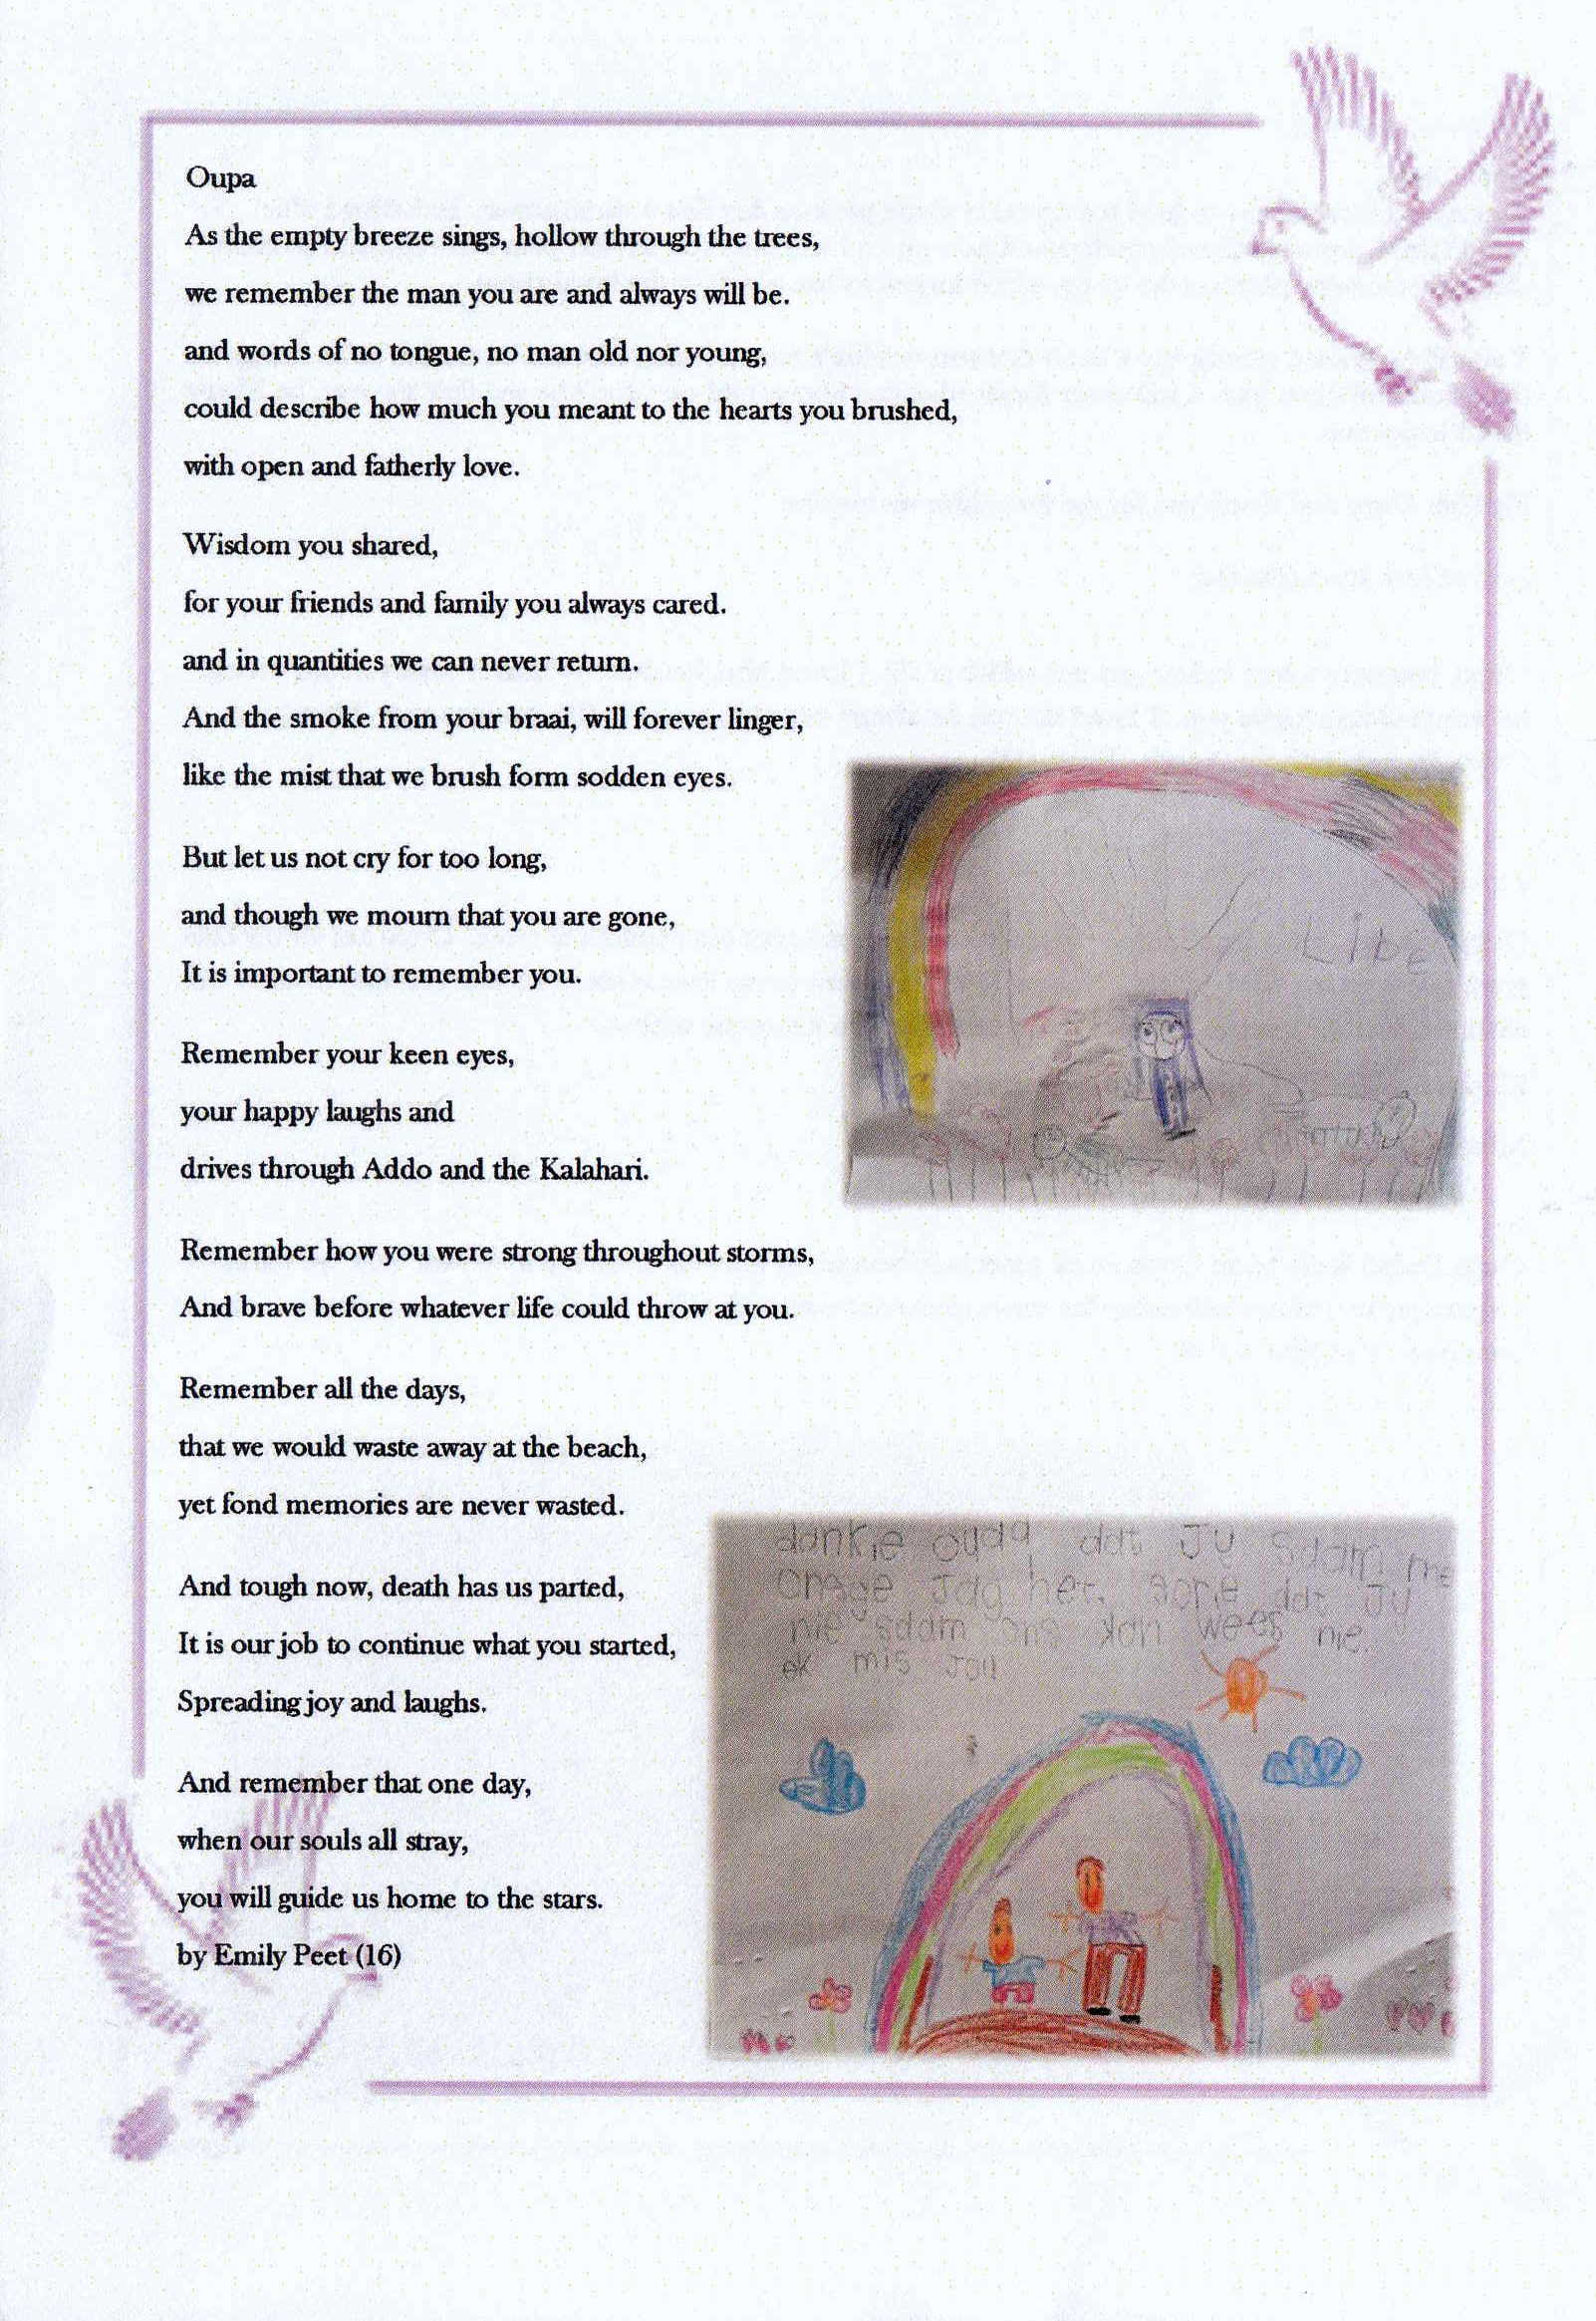 Oupa
As the empty breeze sings, hollow through the trees,
we remember the man you are and always will be.
and words of no tongue, no man old nor young,
could describe how much you meant to the hearts you brushed,
with open and fatherly love.
Wisdom you shared,
for your friends and family you always cared.
and in quantities we can never return.
And the smoke from your braai, will forever linger,
like the mist that we brush form sodden eyes.
But let us not cry for too long,
and though we mourn that you are gone,
It is important to remember you.
Remember your keen eyes,
your happy laughs and
drives through Addo and the Kalahari.
Remember how you were strong throughout storms,
And brave before whatever life could throw at you.
Remember all the days,
that we would waste away at the beach,
yet fond memories are never wasted.
And tough now, death has us parted,
It is our job to continue what you started,
Spreading joy and laughs.
And remember that one day,
when our souls all stray,
you will guide us home to the stars.
by Emily Peet (16)
LIbE
dankie dat JU
Jag het. dat JU
nie ons kan wees nie
ek mis Jou